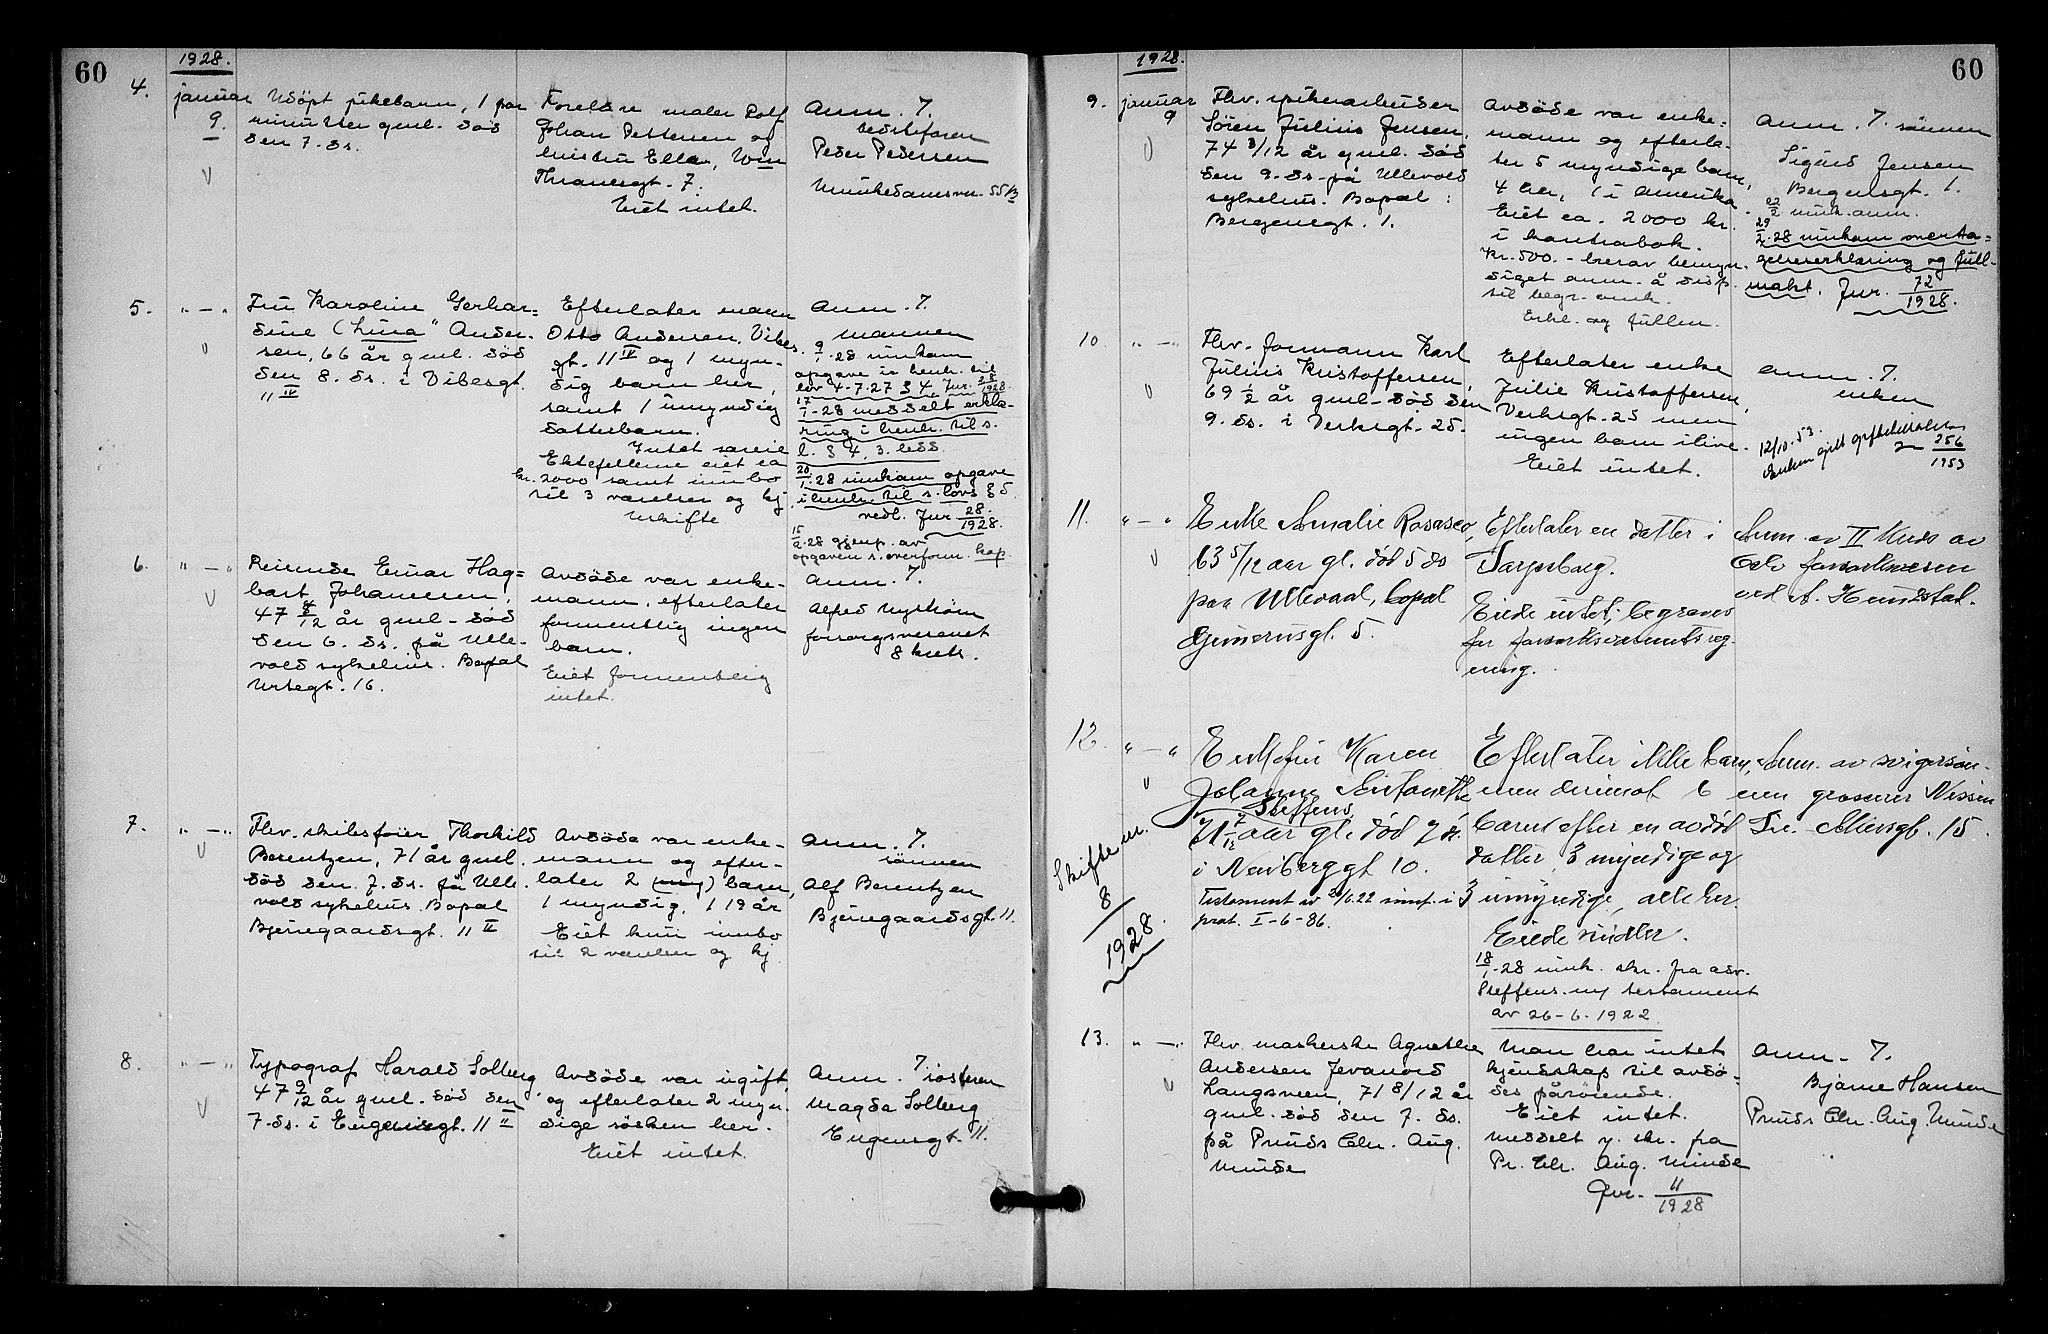 60
1928.
4.
januar
9.
Udöpt pikebarn, 1 par
minutter gml. död
den 7. ds.
Foreldre maler Rolf
Johan Pettersen og
hustru Ella,
Thranesgt. 7.
Eiet intet.
Anm. 7.
bedstefaren
Peder Pedersen
Munkedamsvn. 55 B
5.
" — "
Fru Karoline Gerhar=
dine (Lina" Ander=
sen, 66 år gml. död
den 8. ds. i Vibesgt.
11 IV
Efterlater mann
Otto Andersen, Vibes
gt. 11 IV og 1 myn-
dig barn her,
samt 1 umyndig
datterbarn.
Intet særeie
Ektefellerne eiet ca
kr. 2000 samt innbo
til 3 værelser og kj.
Uskifte
Anm. 7.
mannen
9/1.28 innkom
opgave i henh. til
lov 4-7-27 § 4. Jur. 28/1928.
17/1-28 meddelt erklæ-
ring i henh. til s.
l. § 4, 3. ledd.
20/1.28 innkom opgave
i henh. til s. lovs § 5.
vedl. Jur 28/1928.
15/2.28 gjenp. av
opgaven s. overform. kap.
6.
" — "
Reisende Einar Hag=
bart Johannessen,
47 8/12 år gml. död
den 6. ds. på Ulle-
vold sykehus. Bopæl
Urtegt. 16.
Avdöde var enke-
mann, efterlater
formentlig ingen
barn.
Eiet formentlig
intet.
Anm. 7.
Alfred Nyström
forsorgsvesenet
8 krets.
7.
" — "
Fhv. skibsfører Thorkild
Berentzen, 71 år gml.
död den 7. ds. på Ulle-
vold sykehus. Bopæl
Bjerregaardsgt. 11 II
Avdöde var enke-
mann og efter-
later 2 (myn) barn,
1 myndig, 1 19 år
Eiet kun innbo
til 2 værelser og kj.
Anm. 7.
sönnen
Alf Berentzen
Bjerregaardsgt. 11.
8.
" — "
Typograf Harald Solberg
47 9/12 år gml. död den
7. ds. i Eugeniesgt. 11 II
Avdöde var ugift
og efterlater 2 myn-
dige sösken her.
Eiet intet.
Anm. 7.
söstren
Magda Solberg
Eugensgt. 11.
60
1928.
9.
januar
9
Fhv. spikerarbeider
Sören Julius Jensen,
74 8/12 år gml. död
den 9. ds. på Ullevold
sykehus. Bopæl:
Bergensgt. 1.
Avdöde var enke=
mann og efterla-
ter 5 myndige barn,
4 her, 1 i Amerika.
Eiet ca. 2000 kr.
i kontrabok.
Kr. 500.- herav bemyn-
diget anm. å disp.
til begr. omk.
Erkl. og fullm.
Anm. 7. sönnen
Sigurd Jensen
Bergensgt. 1.
22/2 innk. anm.
29/2.28 innkom overta=
gelseserklæring og full-
makt. Jur. 72/1928.
10.
" — "
Fhv. formann Karl
Julius Kristoffersen,
69 1/2 år gml. död den
9. ds. i Verksgt. 25.
Efterlater enke
Julie Kristoffersen,
Verksgt. 25 men
ingen barn ilive.
Eiet intet.
Anm. 7.
enken
12/10.53.
Enken gitt skiftetillatelse
Jr 256/1953
11.
" — "
Enke Amalie Rosasco,
63 5/12 aar gl. död 5 ds
paa Ullevaal, bopæl
Gjetmerusgt. 5.
Efterlater en datter i
Sarpsborg.
Eiede intet; begraves
for forsorksvæsenets reg-
ning.
Anm. av II Kreds av
Oslo forsorksvæsen
ved A. Hundstad.
12.
" — "
Enkefru Karen
Johanne Antonette
Steffens
71 2/12 aar gl. död 7 ds.
i Neuberggt 10.
Testament av 26/6.22 innf. i
prot. I-6-86.
Skifte m.
8/1928.
Efterlater ikke barn,
men derimot 6
barn efter en avdöd
datter, 3 myndige og
3 umyndige, alle her.
Eiede midler.
18/1.28 innk. skr. fra adv.
Steffens m/ testament
av 26-6-1922
Anm. av svigersön-
nen grosserer Nissen
Tr. Meiersgt. 15.
13.
" — "
Fhv. maskerske Agnethe
Andersen Jevanord
Langsveen, 71 8/12 år
gml. död den 7. ds.
på Pruds Chr. Aug.
Minde
Man har intet
kjendskap til avdö-
des pårörende.
Eiet intet.
Meddelt v. skr. fra
Pr. Chr. Aug. Minde
Jur. 11/1928
Anm. 7.
Bjarne Hansen
Pruds Chr. Aug. Minde